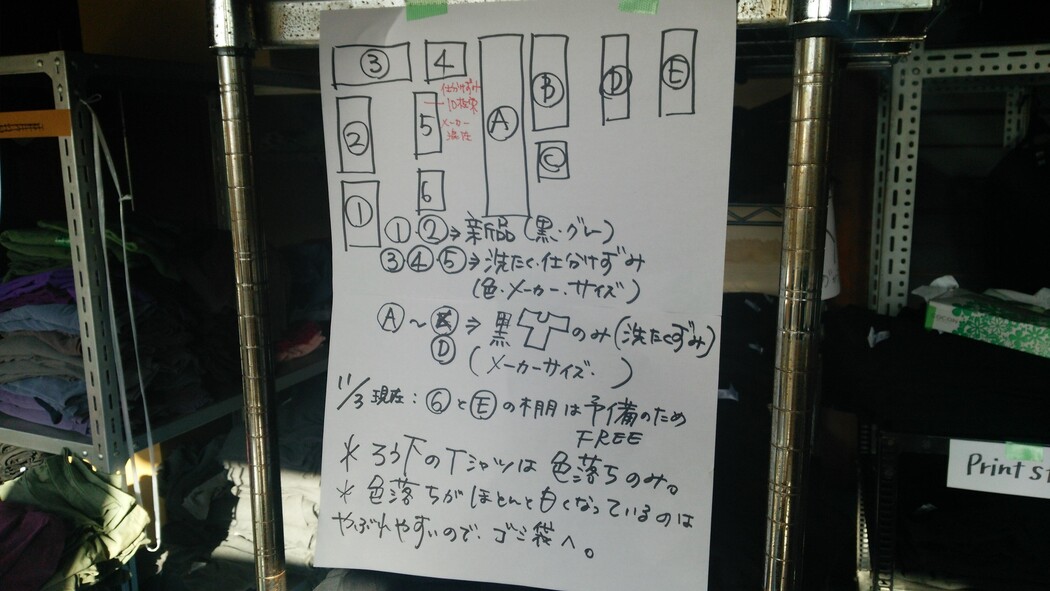 ③ ④ Ⓐ Ⓑ Ⓓ Ⓔ
② 5 Ⓒ
仕分けずみ
メーカー
① 6
①・②⇒新品(黒・グレー)
③④⑤⇒洗たく・仕分けずみ
(色・メーカー・サイズ)
Ⓐ～Ⓓ⇒黒 のみ(洗たくずみ)
(メーカーサイズ・ )
11/3現在:⑥とⒺの棚は予備のため
FREE
*ろう下のTシャツは色落ちのみ。
*色落ちがほとんど白くなっているのは
やぶれやすいので、ゴミ袋へ。
Print St